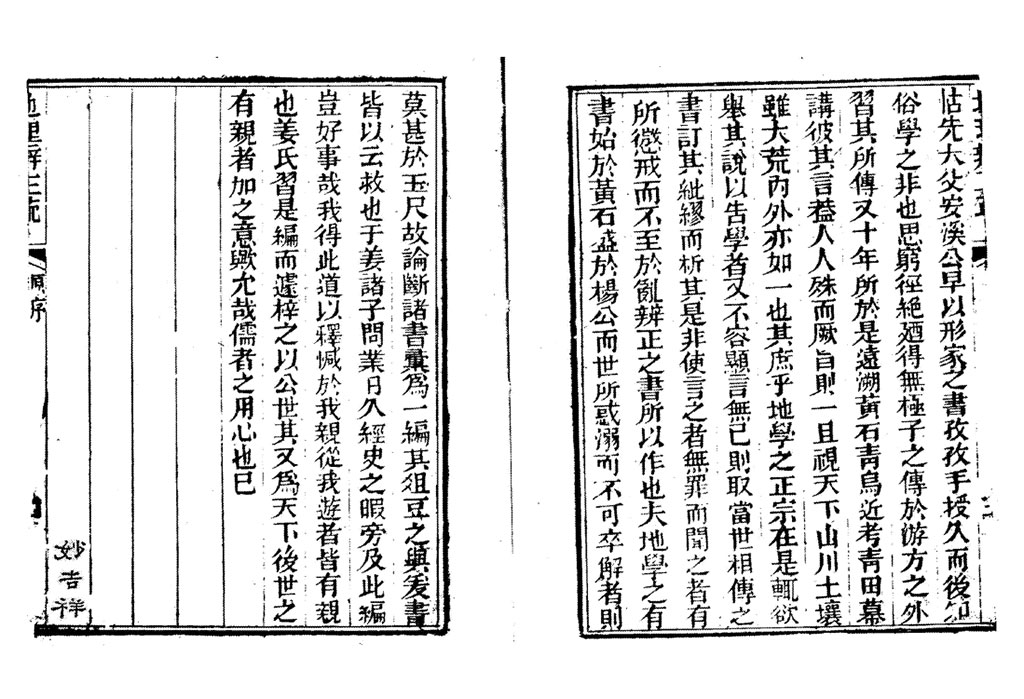 怙先大父安溪公早以形家之書孜孜手授久而後知
俗學之非也思窮徑絕廼得無極子之傳於游方之外
習其所傳又十年所於是遠溯黃石靑烏近考靑田幕
講彼其言葢人人殊而厥旨則一且視天下山川土壤
雖大荒內外亦如一也其庶乎地學之正宗在是輒欲
舉其說以告學者又不容顯言無已則取當世相傳之
書訂其紕繆而析其是非使言之者無罪而聞之者有
所懲戒而不至於亂辨正之書所以作也夫地學之有
書始於黃石盛於楊公而世所惑溺而不可卒解者則
莫甚於玉尺故論斷諸書彙爲一編其俎豆之與爰書
皆以云救也于姜諸子問業日久經史之暇旁及此編
豈好事哉我得此道以釋憾於我親從我遊者皆有親
也姜氏習是編而遽梓之以公世其又爲天下後世之
有親者加之意歟允哉儒者之用心也已
地理辨正疏
原序
妙吉祥